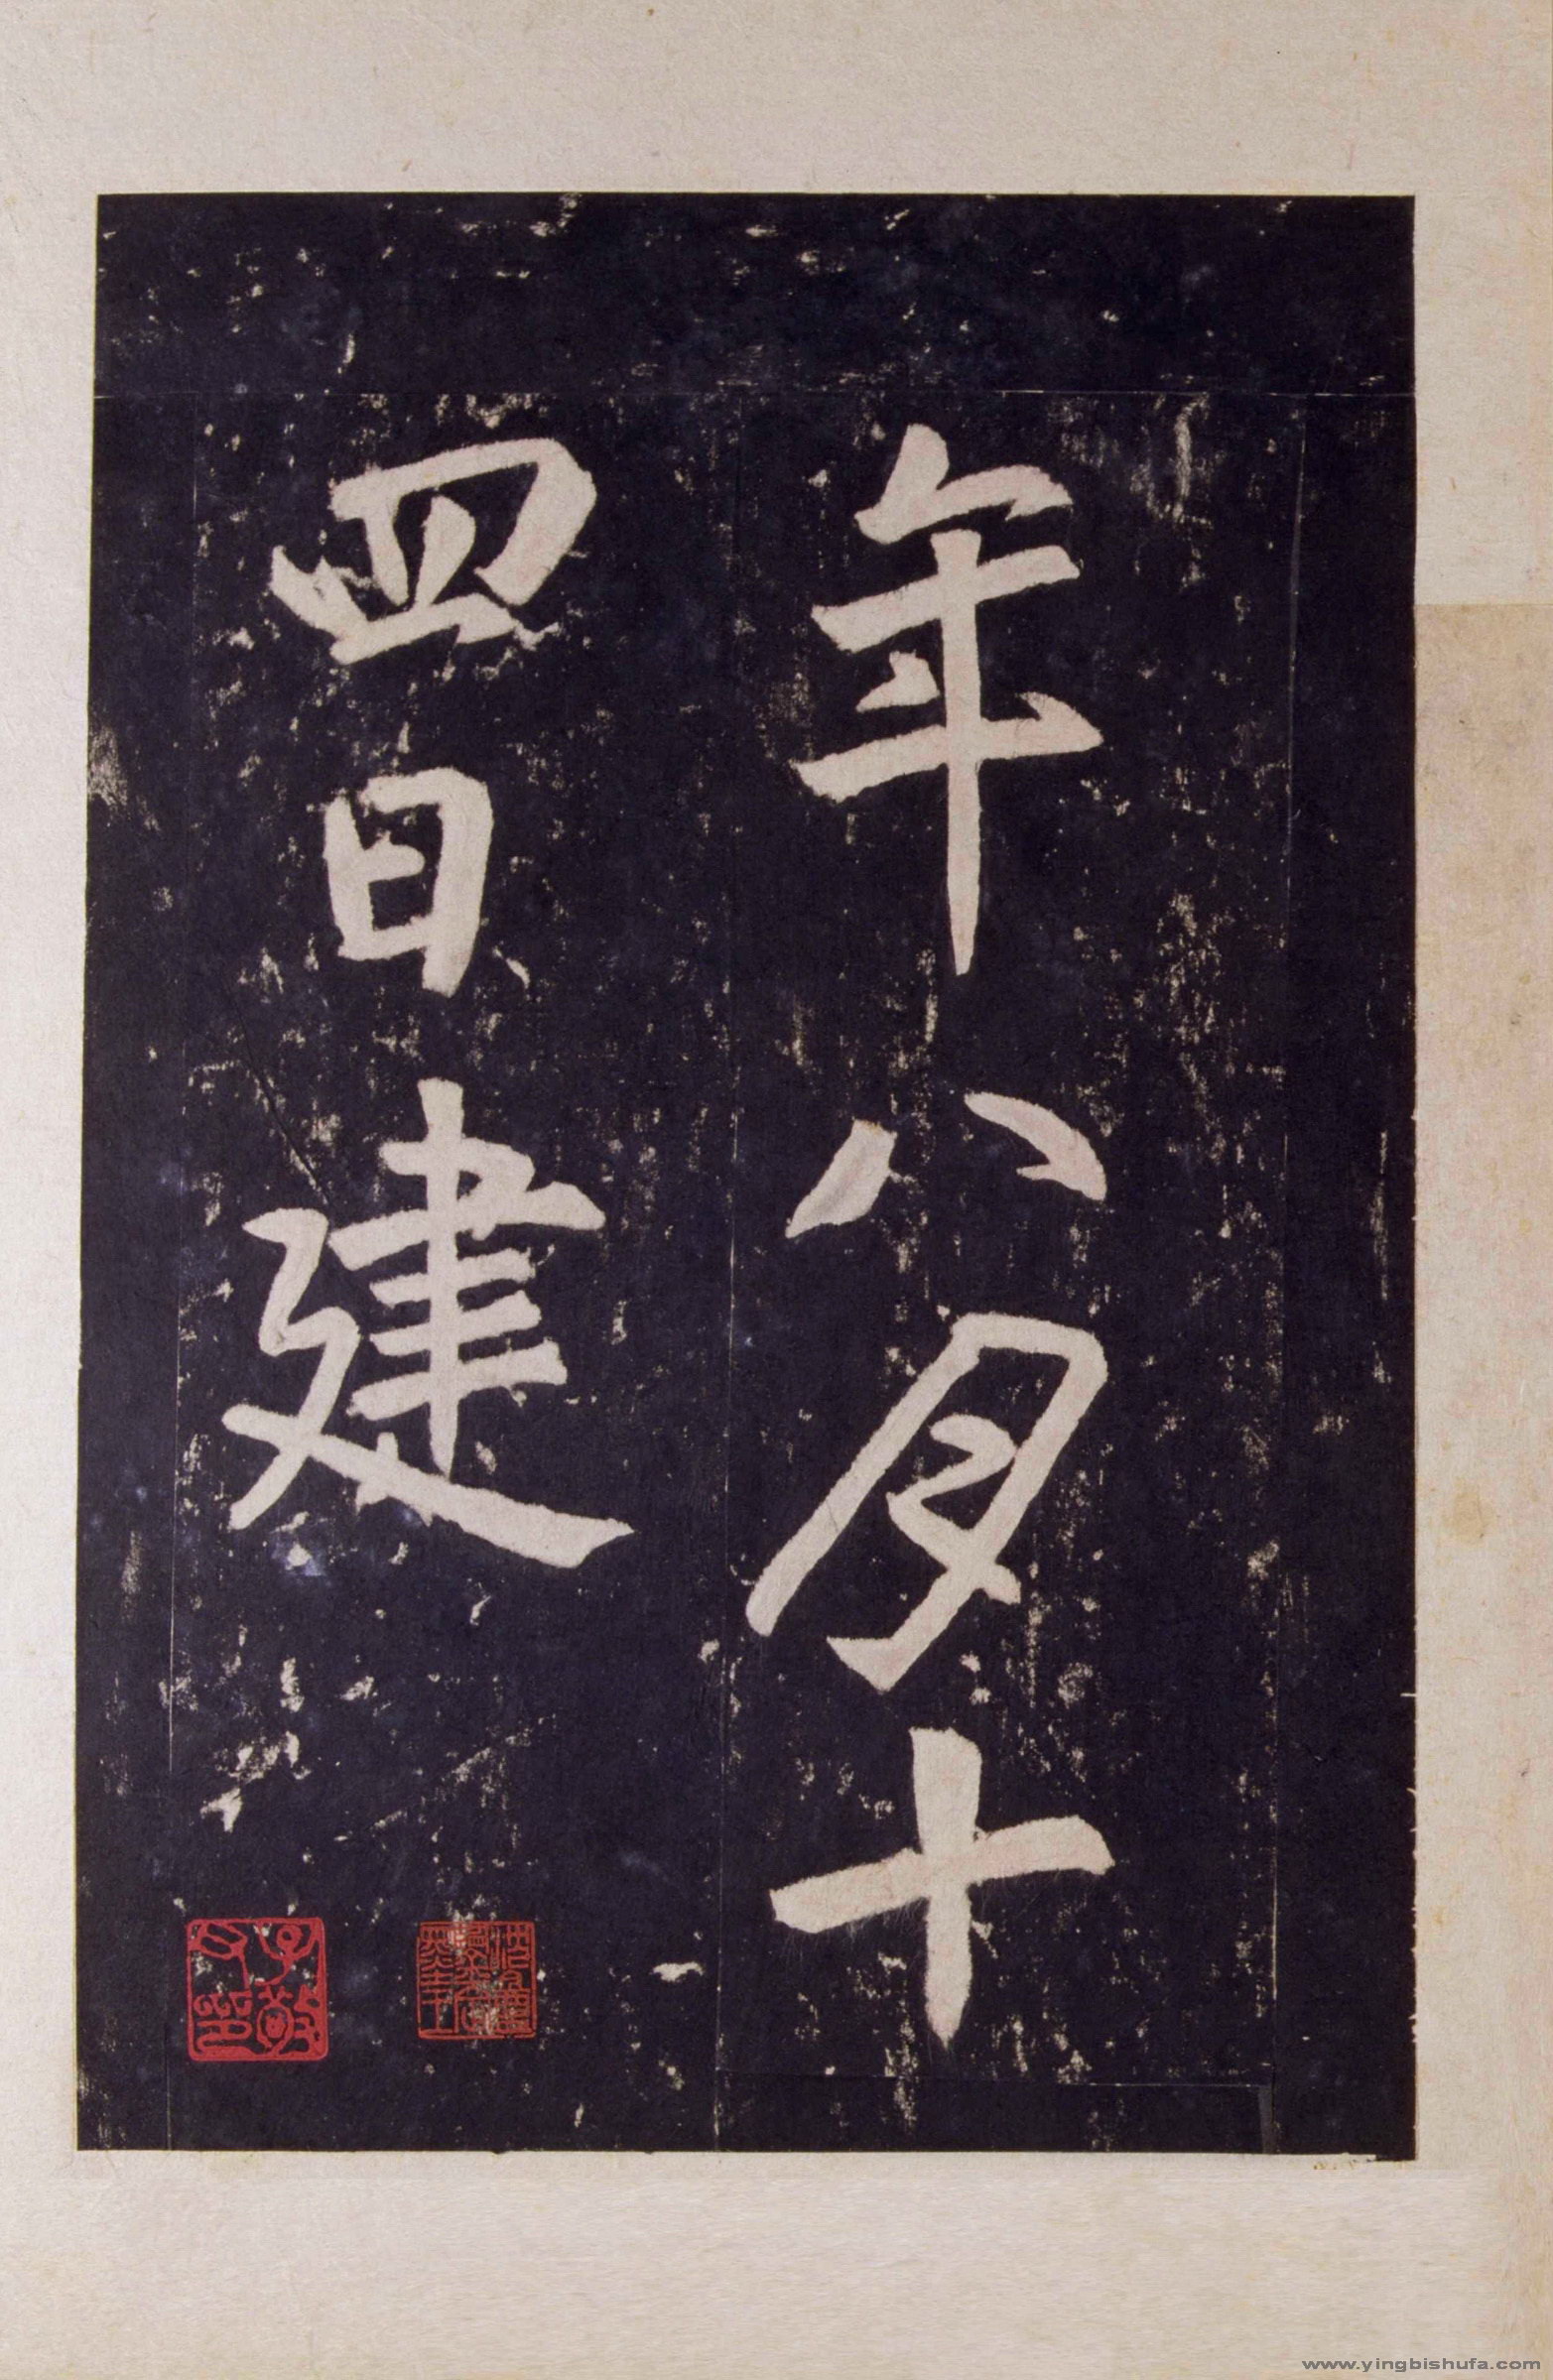 年八月十
四日建
www.yingbishufa.com